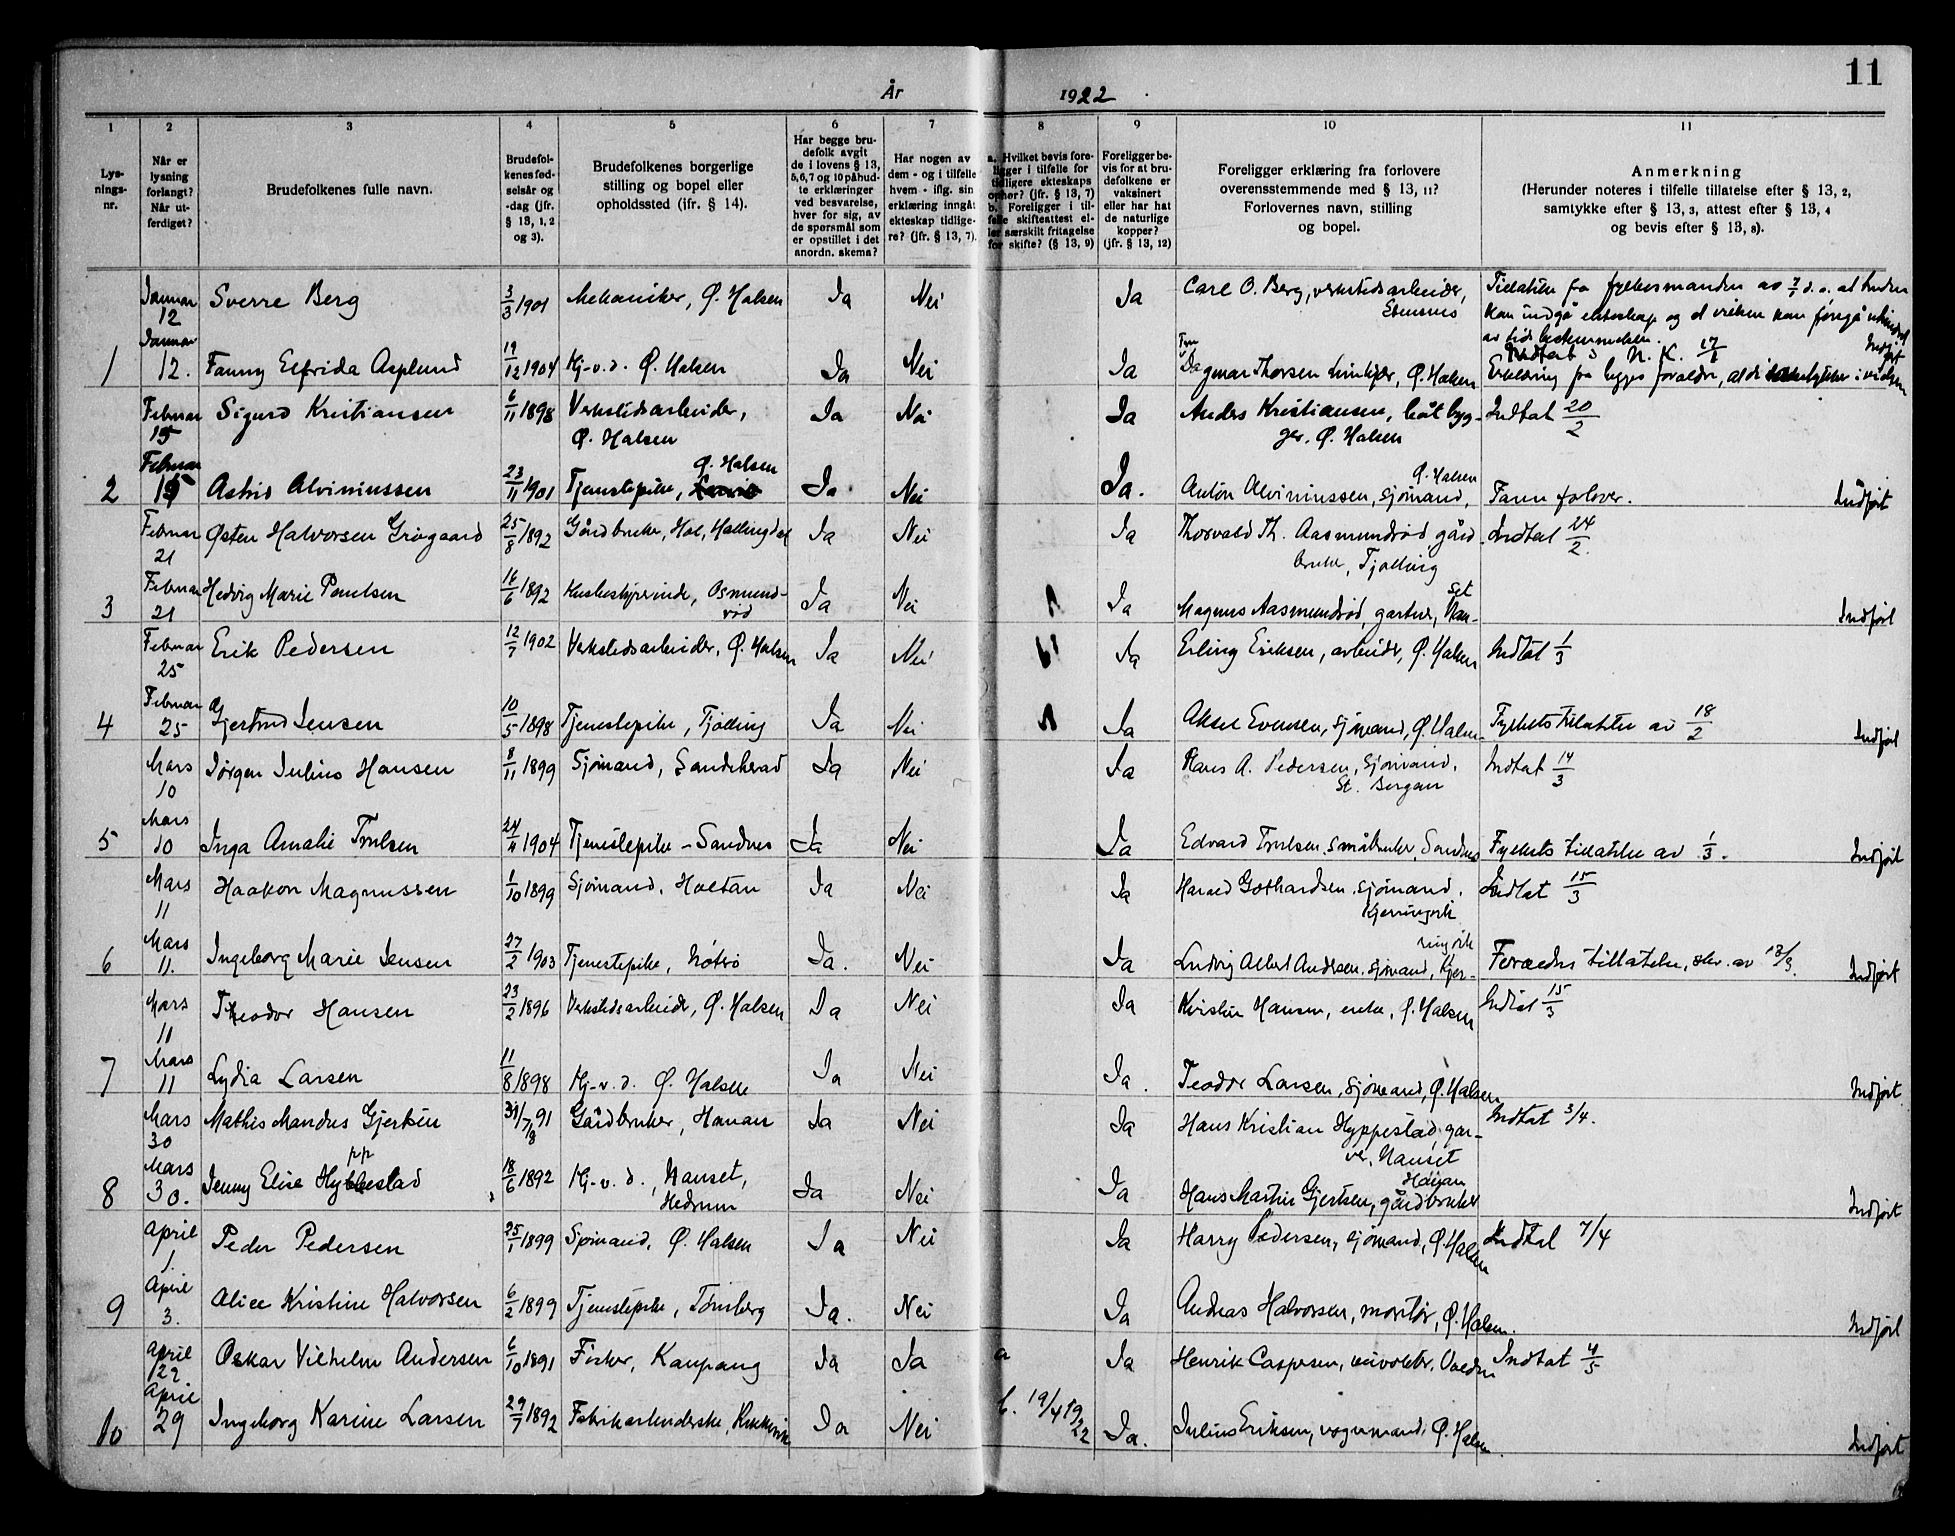 11
År 1922
1 2 3 4 5 6 7 8 9 10 11
Lys-
nings-
nr.
Når er
lysning
forlangt?
Når ut-
ferdiget?
Brudefolkenes fulle navn.
Brudefol-
kenes fød-
selsår og
-dag (jfr.
§ 13, 1, 2
og 3).
Brudefolkenes borgerlige
stilling og bopel eller
opholdssted (jfr. § 14).
Har begge bru-
defolk avgit
de i lovens § 13,
5,6,7 og 10 påbud-
te erklæringer
ved besvarelse,
hver for sig, av
de spørsmål som
er opstillet i det
anordn. skema?
Har nogen av
dem - og i tilfelle
hvem - iflg. sin
erklæring inngått
ekteskap tidlige-
re? (jfr. § 13, 7).
a. Hvilket bevis fore-
ligger i tilfelle for
tidligere ekteskaps
ophør? (jfr. § 13, 7)
b. Foreligger i til-
felle skifteattest el-
ler særskilt fritagelse
for skifte? (§ 13, 9)
Foreligger be-
vis for at bru-
defolkene er
vaksinert
eller har hat
de naturlige
kopper?
(jfr. § 13, 12)
Foreligger erklæring fra forlovere
overensstemmende med § 13, 11?
Forlovernes navn, stilling
og bopel.
Anmerkning
(Herunder noteres i tilfelle tillatelse efter § 13, 2,
samtykke efter § 13, 3, attest efter § 13, 4
og bevis efter § 13, 8).
Januar 12 Sverre Berg 3/3 1901 Mekaniker, Ø. Halsen Ja Nei Ja Carl O. Berg, verkstedsarbeider, Tillatelse fra fylkesmanden av 7/1 d. a. at bruden
kan indgå ekteskap og at vielsen kan foregå
1 Januar 12. Fanny Elfrida Asplund 19/12 1904 Hj.v.d. Ø. Halsen Ja Nei Ja Dagmar Thorsen, Ø. Halsen Erklæring fra begge forældre, at de samtykker i vielsen Indført
Februar 15 Sigurd Kristiansen 6/11 1898 Verkstedsarbeider, Ø. Halsen Ja Nei Ja Anders Kristiansen, båtbyg-
ger. Ø. Halsen Indtat 20/2
2 Februar 15 Astrid Alviniussen 23/11 1901 Tjenestepike, Ø. Halsen Ja Nei Ja. Anton Alviniussen, sjømand, Ø. Halsen Indført
Februar 21 Østen Halvorsen Grøgaard 25/8 1892 Gårdbruker, Hol, Hallingdal Ja Nei Ja Thorvald Th. Aasmundrød, gård-
bruker, Tjølling Indtat 24/2.
3 Februar 21 Hedvig Marie Paulsen 16/6 1892 Husbestyrerinde, Osmund-
rød Ja Nei Ja Magnus Aasmundrød, gartner, Nan-
set Indført
Februar 25 Erik Pedersen 12/7 1902 Verkstedsarbeider, Ø. Halsen Ja Nei Ja Erling Eriksen, arbeider, Ø. Halsen Indtat 1/3
4 Februar 25 Gjertrud Jensen 10/5 1898 Tjenestepike, Tjølling Ja Nei Ja Aksel Evensen, sjømand, Ø. Halsen Fylkets tillatelse av 18/2 Indført
Mars 10 Jørgen Julius Hansen 8/11 1899 Sjømand, Sandeherad Ja Nei Ja Hans A. Pedersen, Sjømand,
St. Bergan Indtat 14/3
5 Mars 10 Inga Amalie Trulsen 24/11 1904 Tjenestepike - Sandnes Ja Nei Ja Edvard Trulsen, småbruker, Sandnes Fylkets tillatelse av 1/3. Indført
Mars 11 Haakon Magnussen 1/10 1899 Sjømand, Holtan Ja Nei Ja Harald Gothardsen, sjømand,
Kjerringvik Indtat 15/3
6 Mars 11. Ingeborg Marie Jensen 27/2 1903 Tjenestepike, Nøtrø Ja. Nei Ja Ludvig Albert Andersen, sjømand, Kjer-
ringvik Forældres tillatelse, skr. av 12/3. Indført
Mars 11 Theodor Hansen 23/2 1896 Verkstedsarbeider, Ø. Halsen Ja Nei Ja Kristine Hansen, enke, Ø. Halsen Indtat 15/3
7 Mars 11 Lydia Larsen 11/8 1898 Hj.-v.d. Ø. Halsen Ja Nei Ja. Teodor Larsen, sjømand, Ø. Halsen Indført
Mars 30 Mathis Mandus Gjertsen 31/7 91 Gårdbruker, Hauan Ja Nei Ja Hans Kristian Hyppestad, gar-
ver, Nanset Indtat 3/4.
8 Mars 30. Jenny Elise Hyppestad 18/6 1892 Hj-v.d., Nanset,
Hedrum Ja Nei Ja Hans Martin Gjertsen, gårdbruker Hauan Indført
April 1. Peder Pedersen 25/1 1899 Sjømand, Ø. Halsen Ja Nei Ja Harry Pedersen, sjømand, Ø. Halsen Indtat 7/4
9 April 3. Alice Kristine Halvorsen 6/2 1899 Tjenestepike, Tønsberg Ja. Nei Ja Andreas Halvorsen, montør, Ø. Halsen. Indført
April 22 Oskar Vilhelm Andersen 6/10 1891 Fisker, Kaupang Ja Ja a Ja Henrik Caspersen Indtat 4/5
10 April 29 Ingeborg Karine Larsen 29/7 1892 Fabrikarbeiderske, Rekkevik Ja Nei b. 19/4 1922 Ja. Julius Eriksen, vognmand, Ø. Halsen. Indført